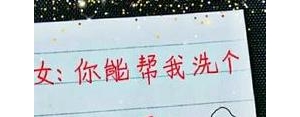 女:你能帮我洗个